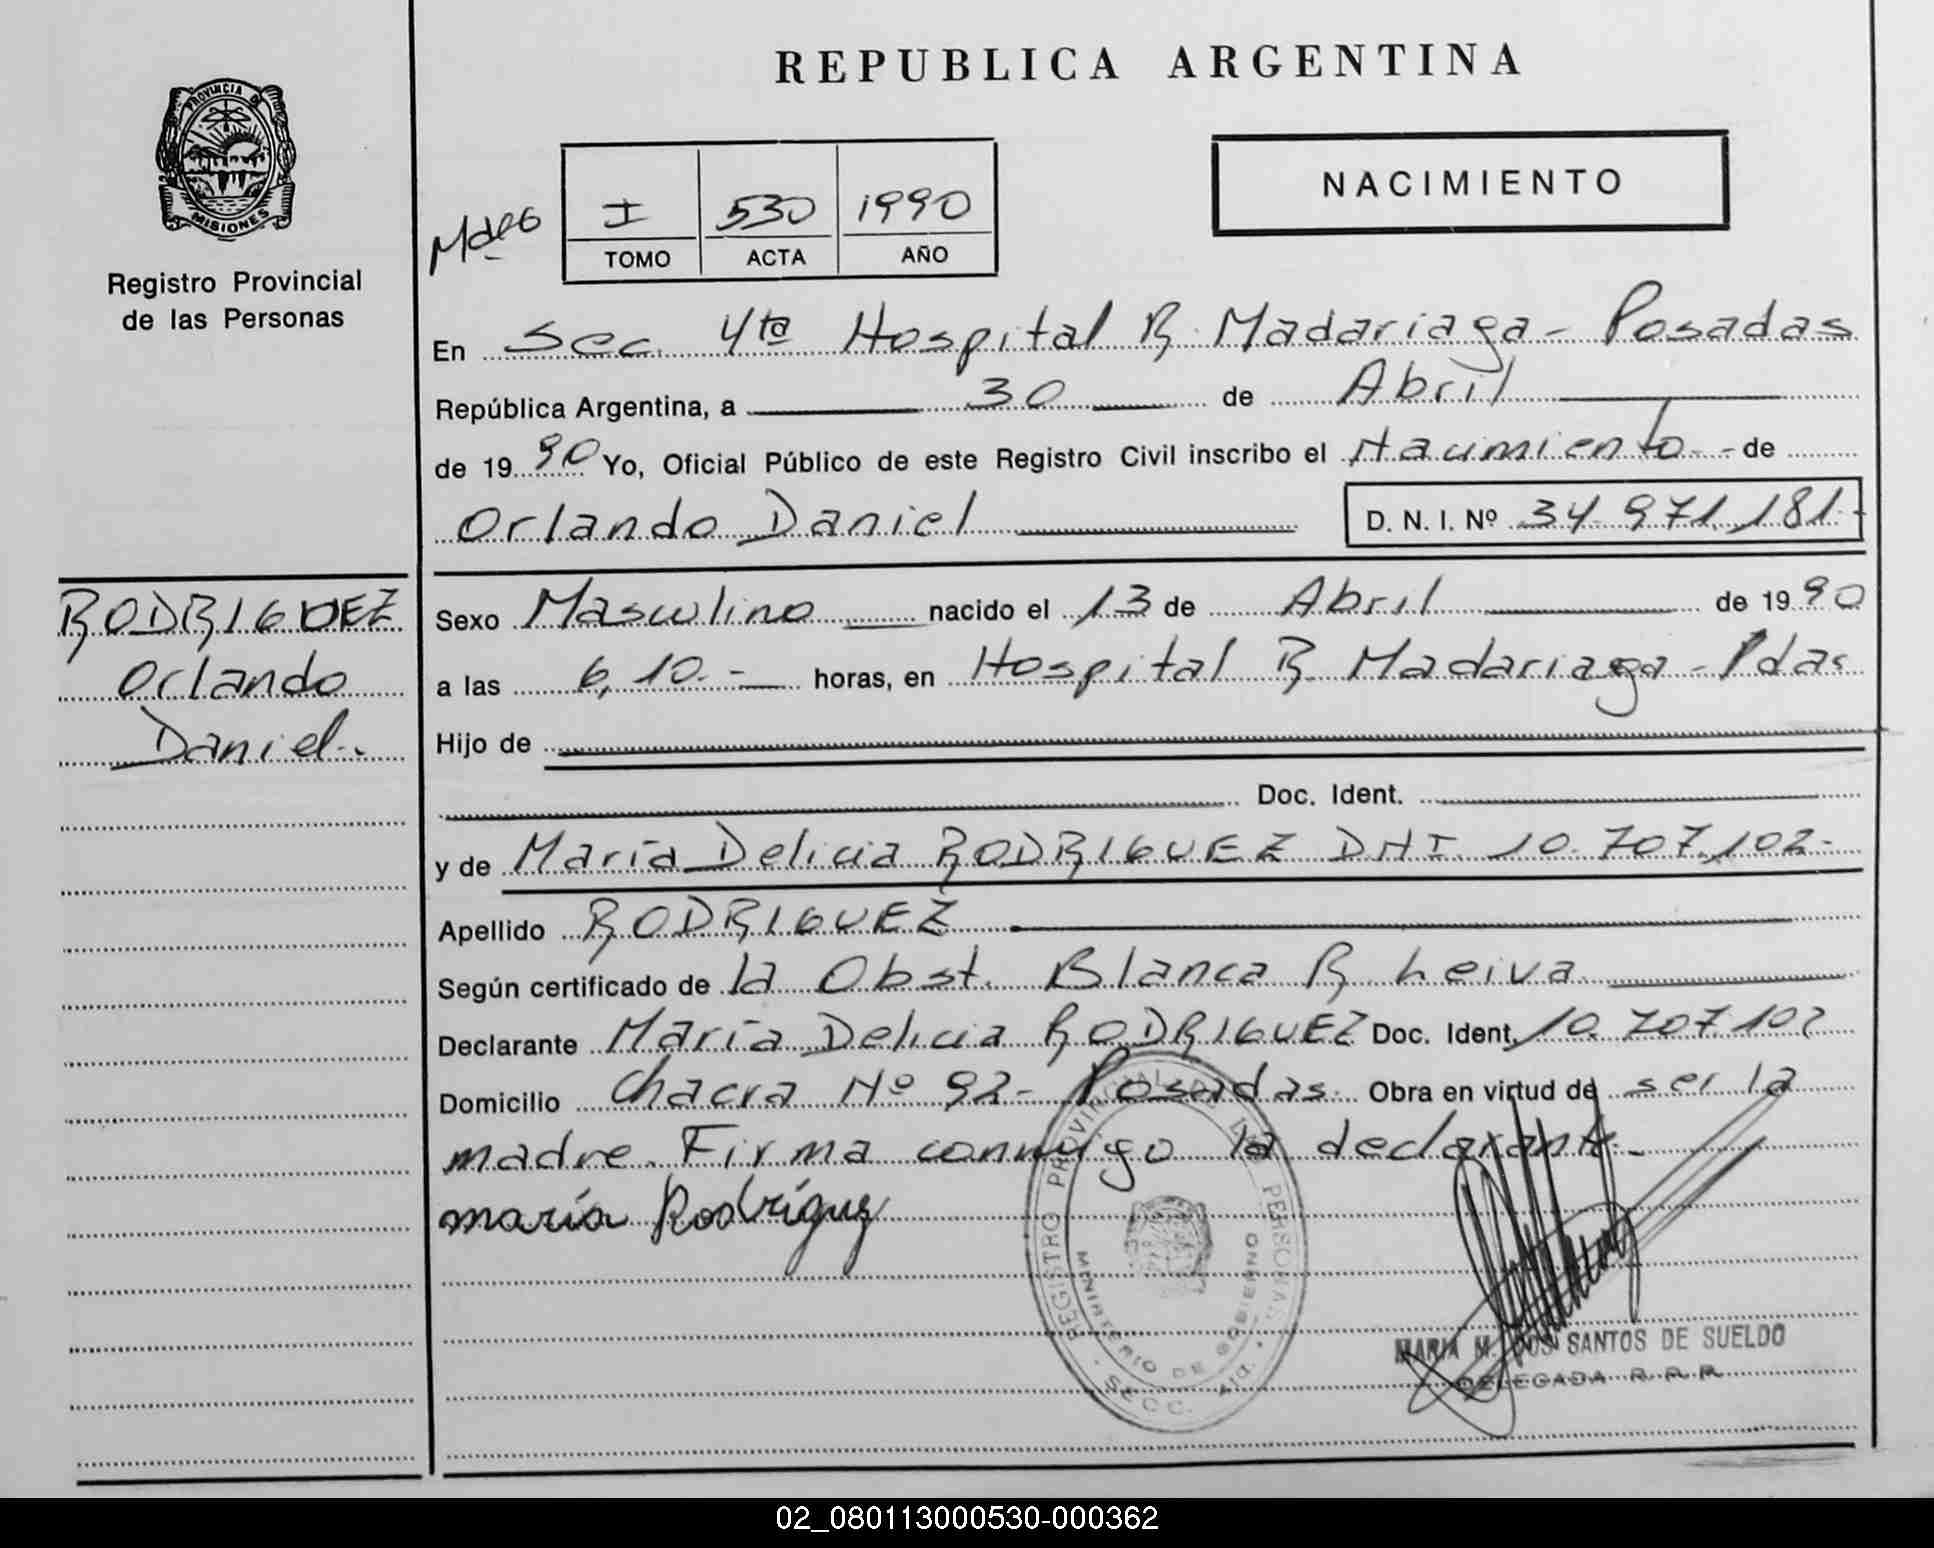 REPUBLICA ARGENTINA
PROVINCIA DE
MISIONES
Registro Provincial
de las Personas
NACIMIENTO
I 530 1990
TOMO ACTA AÑO
En Sec. 4ta Hospital R. Madariaga - Posadas
República Argentina, a 30 de Abril
de 1990 Yo, Oficial Público de este Registro Civil inscribo el Nacimiento - de
Orlando Daniel D. N. I. Nº 34.971.181.-
RODRIGUEZ
Orlando
Daniel..
Sexo Masculino nacido el 13 de Abril de 1990
a las 6,10.- horas, en Hospital R. Madariaga - Pdas
Hijo de
Doc. Ident.
y de María Delicia RODRIGUEZ DNI. 10.707.102-
Apellido RODRIGUEZ
Según certificado de la Obst. Blanca R. Leiva
Declarante María Delicia RODRIGUEZ Doc. Ident. 10.707.102
Domicilio Chacra Nº 92- Posadas. Obra en virtud de ser la
madre. Firma conmigo la declarant.-
maría Rodríguez
REGISTRO PROVINCIAL DE LAS PERSONAS
MINISTERIO DE GOBIERNO
SECC. 4ta.
MARIA M. DOS SANTOS DE SUELDO
DELEGADA R. P. P.
02_080113000530-000362